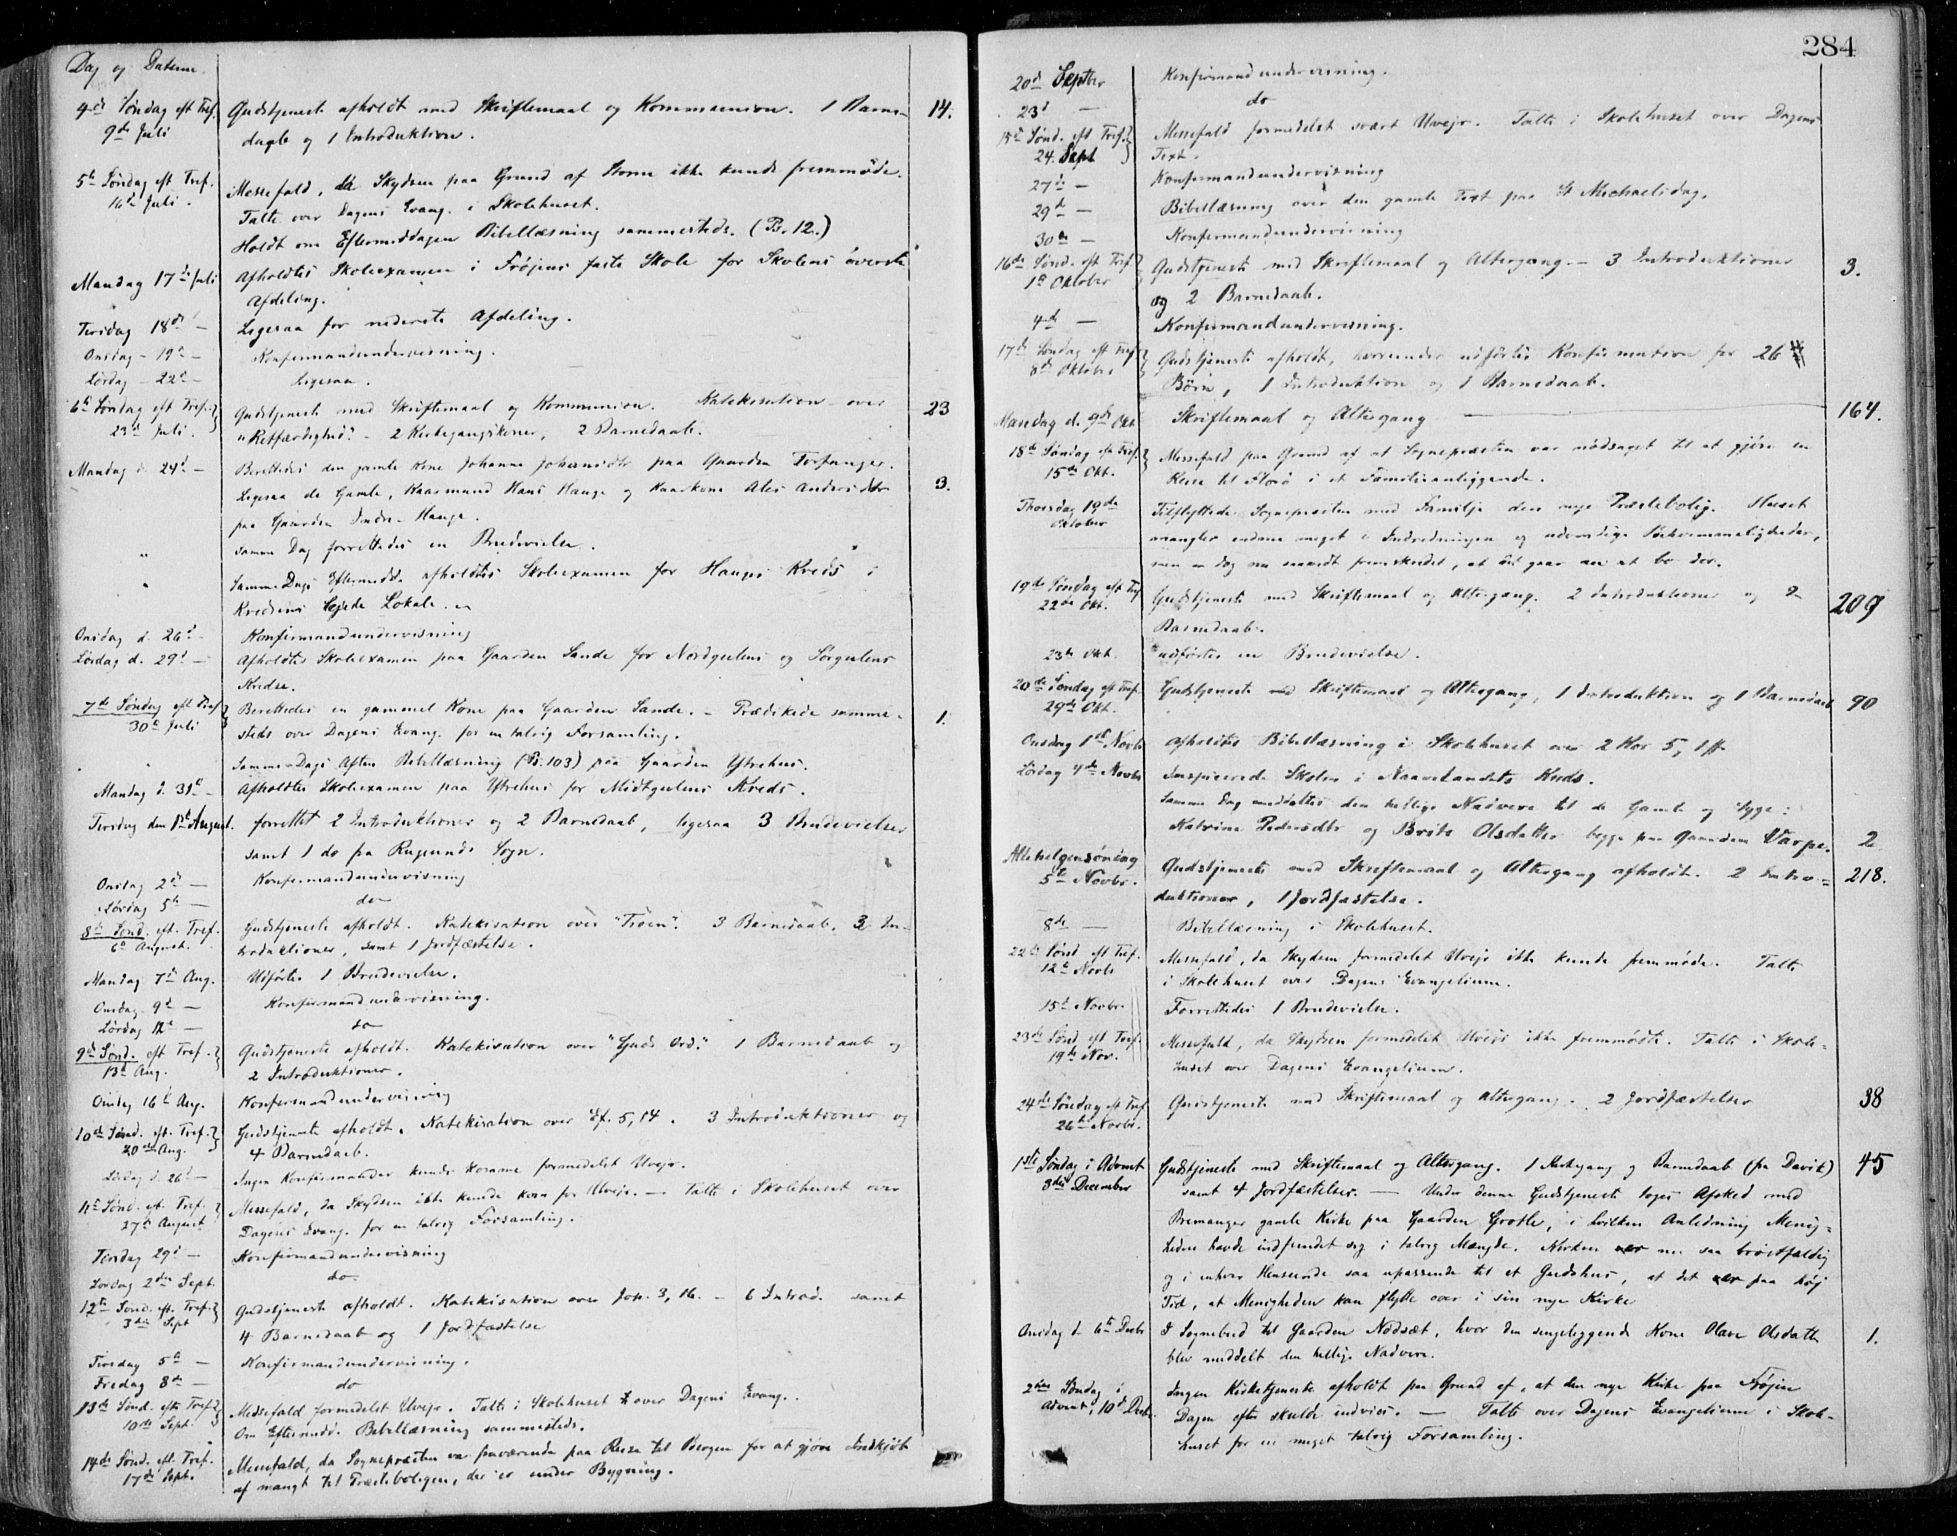 Dag og Datum.
4de Søndag eft Tref. Gudstjeneste afholdt med Skriftemaal og Kommunion. 1 Barne- 14.
9de Juli daab og 1 Introduktion.
5te Søndag eft. Tref. Messefald, da Skydsen paa Grund af Storm ikke kunde fremmøde.
16de Juli. Talte over Dagens Evang. i Skolehuset.
Holdt om Eftermiddagen Bibellæsning sammesteds. (Ps. 12.)
Mandag 17de Juli Afholdtes Skoleexamen i Frøjens faste Skole for Skolens øverste
Afdeling.
Tirsdag 18de — Ligesaa for nederste Afdeling.
Onsdag - 19de — Konfirmandundervisning.
Lørdag - 22de — Ligesaa.
6te Søndag eft Tref. Gudstjeneste med Skriftemaal og Kommunion. Katekisation over 23
23de Juli. "Retfærdighed". - 2 Kirkegangskoner, 2 Barnedaab.
Mandag d. 24de — Berettedes den gamle Kone Johanne Johannesdtr paa Gaarden Torfanger.
Ligesaa de Gamle, Kaarmand Hans Hauge og Kaarkone Ales Andersdtr 3.
paa Gaarden Indre-Hauge.
" Samme Dag forrettedes en Brudevielse.
" Samme Dags Eftermidd. afholdtes Skoleexamen for Hauges Kreds i
Kredsens lejede Lokale.
Onsdag d. 26de — Konfirmandundervisning
Lørdag d. 29de — Afholdtes Skoleexamen paa Gaarden Sande for Nordgulens og Sørgulens
Kredse.
7de Søndag eft Tref Berettedes en gammel Kone paa Gaarden Sande. - Prædikede samme- 1.
30te Juli steds over Dagens Evang. for en talrig Forsamling.
Samme Dags Aften Bibellæsning (Ps. 103) paa Gaarden Ytrehus.
Mandag d. 31te — Afholdtes Skoleexamen paa Ytrehus for Midtgulens Kreds.
Tirsdag den 1ste August. forrettet 2 Introduktioner og 2 Barnedaab, ligesaa 3 Brudevielser
samt 1 do fra Rugsunds Sogn.
Onsdag 2de — Konfirmandundervisning
Lørdag 5te — do
8de Sønd. eft. Tref. Gudstjeneste afholdt. Katekisation over "Troen". 3 Barnedaab, 3 In-
6te August. troduktioner, samt 1 Jordfæstelse.
Mandag 7de Aug. Udførtes 1 Brudevielse.
Onsdag 9de — Konfirmandundervisning.
Lørdag 12te — do
9de Sønd. eft Tref. Gudstjeneste afholdt. Katekisation over "Guds Ord". 1 Barnedaab og
13de Aug. 2 Introduktioner.
Onsdag 16de Aug. Konfirmandundervisning
10de Sønd. eft. Tref. Gudstjeneste afholdt. Katekisation over Ef. 5, 14. 3 Introduktioner og
20de Aug. 4 Barnedaab.
Lørdag d. 26de — Ingen Konfirmander kunde komme formedelst Uvejr.
11te Sønd. eft. Tref. Messefald, da Skydsen ikke kunde kom for Uvejr. — Talte i Skolehuset over
27de August Dagens Evang. for en talrig Forsamling.
Tirsdag 29de — Konfirmandundervisning
Lørdag 2den Sept. do
12te Sønd. eft. Tref. Gudstjeneste afholdt. Katekisation over Joh. 3, 16. - 6 Introd. samt
3die Sept 4 Barnedaab og 1 Jordfæstelse
Tirsdag 5te — Konfirmandundervisning.
Fredag 8de — do
13de Sønd. eft. Tref Messefald formedelst Uvejr. Talte i Skolehuset over Dagens Evang.
10de Sept. Om Eftermidd. Bibellæsning sammesteds.
14de Sønd. eft. Tref. Messefald, da Sognepresten var fraværende paa Reise til Bergen for at gjøre Indkjøb
17de Sept. af mangt til Præsteboligen, der er under Bygning.
284
20de Septbr Konfirmandundervisning.
23de — do
15de Sønd. eft Tref. Messefald formedelst svært Uvejr. Talte i Skolehuset over Dagens
24. Sept Text.
27de — Konfirmandundervisning
29de — Bibellæsning over den gamle Text paa St Michaelsdag.
30te — Konfirmandundervisning
16de Sønd. eft Tref Gudstjeneste med Skriftemaal og Altergang. - 3 Introduktioner 3.
1ste Oktober og 2 Barnedaab.
4de — Konfirmandundervisning.
17de Søndag eft Tref Gudstjeneste afholdt, hvorunder udførtes Konfirmation for 26
8de Oktober Børn, 1 Introduktion og 1 Barnedaab.
Mandag d. 9de Okt Skriftemaal og Altergang — 164.
18de Søndag eft Tref. Messefald paa Grund af at Sognepræsten var nødsaget til at gjøre en
15de Okt. Reise til Florø i et Familieanliggende.
Thorsdag 19de Tilflyttede Sognepræsten med Familje den nye Præstebolig. Huset
Oktober mangler endnu meget i Indredningen og udvendige Bekvemmeligheder,
men er dog nu saavidt fremskredet, at det gaar an at bo der.
19de Søndag eft Tref Gudstjeneste med Skriftemaal og Altergang. 2 Introduktioner og 2 209
22de Okt. Barnedaab.
23de Okt. udførtes en Brudevielse.
20de Søndag eft Tref. Gudstjeneste med Skriftemaal og Altergang, 1 Introduktion og 1 Barnedaab 90
29de Okt.
Onsdag 1ste Novbr Afholdtes Bibellæsning i Skolehuset over 2 Kor 5, 1ff
Lørdag 4de Novbr Inspicerede Skolen i Naavelandets Kreds.
Samme Dag meddeltes den hellige Nadvere til de Gamle og Syge:
Katrina Pedersdtr og Brite Olsdatter begge paa Gaarden Varpe. 2
Allehelgensøndag Gudstjeneste med Skriftemaal og Altergang afholdt. 2 Intro- 218.
5te Novbr. duktioner, 1 Jordfæstelse.
8de — Bibellæsning i Skolehuset.
22de Sønd eft Tref. Messefald, da Skydsen formedelst Uvejr ikke kunde fremmøde. Talte
12te Novbr i Skolehuset over Dagens Evangelium.
15de Novbr. Forrettedes 1 Brudevielse.
23de Sønd. eft Tref. Messefald, da Skydsen formedelst Uvejr ikke fremmødte. Talte i Skole-
19de Nov. huset over Dagens Evangelium.
24de Søndag eft Tref Gudstjeneste med Skriftemaal og Altergang. 2 Jordfæstelser 38
26de Novbr.
1ste Søndag i Advent Gudstjeneste med Skriftemaal og Altergang. 1 Kirkegang og Barnedaab (fra Davik) 45
3die December samt 4 Jordfæstelser. — Under denne Gudstjeneste toges Afsked med
Bremanger gamle Kirke paa Gaarden Grotle, i hvilken Anledning Menig-
heden havde indfundet sig i talrig Mængde. Kirken er nu saa brøstfældig
og i enhver Henseende saa upassende til et Gudshus, at det er paa høj
Tid, at Menigheden kan flytte over i sin nye Kirke
Onsdag d 6te Decbr I Sognebud til Gaarden Nødsæt, hvor den sengeliggende Kone Olave Olsdatter 1.
blev meddelt den hellige Nadvere.
2den Søndag i Ingen Kirketjeneste afholdt paa Grund af, at den nye Kirke paa Frøjen
Advent, 10de Decbr. Dagen efter skulde indvies. — Talte over Dagens Evangelium i Skole-
huset for en meget talrig Forsamling.